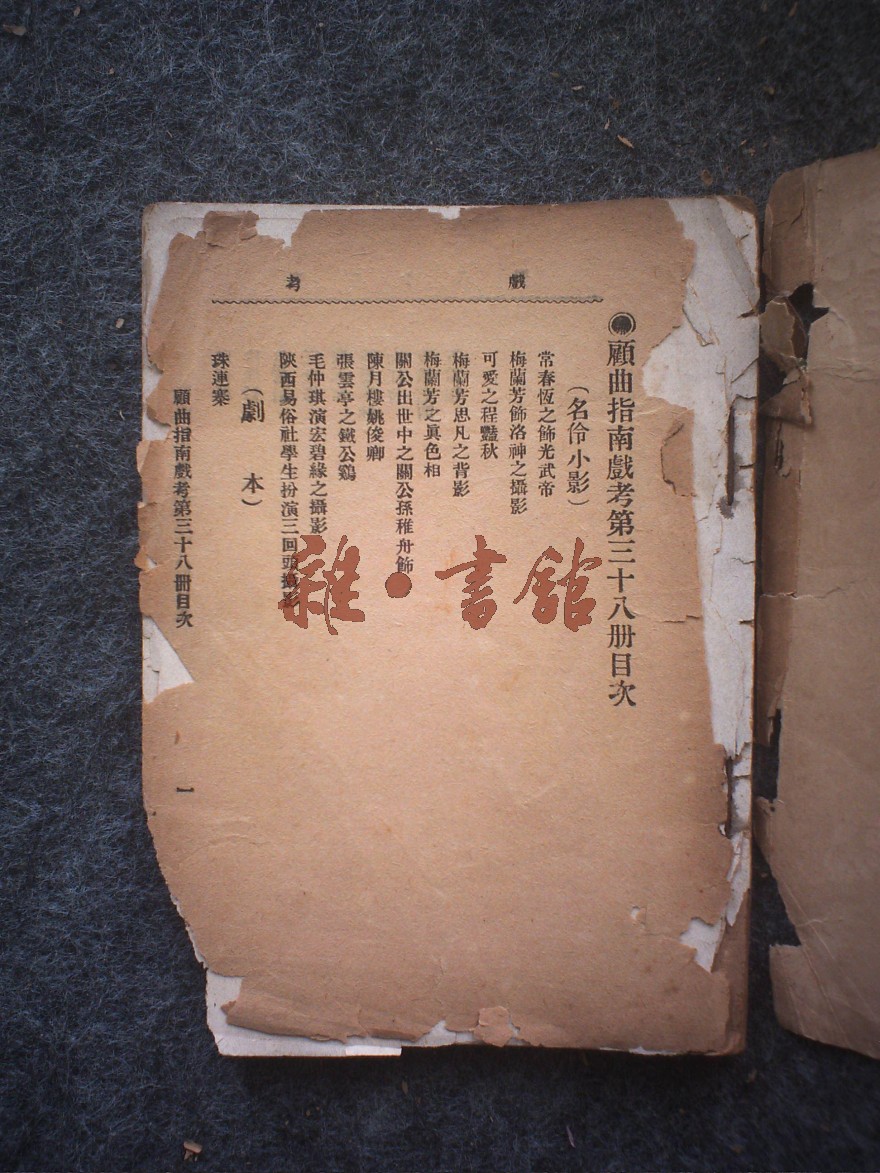 戲考
顧曲指南戲考第三十八册目次
（名伶小影）
常春恆之飾光武帝
梅蘭芳飾洛神之攝影
可愛之程豔秋
梅蘭芳思凡之背影
梅蘭芳之眞色相
關公出世中之關公孫稚舟飾
陳月樓姚俊卿
張雲亭之鐵公鷄
毛仲琪演宏碧緣之攝影
陝西易俗社學生扮演三回頭攝影
（劇本）
珠連寨
顧曲指南戲考第三十八冊目次
一
雜·書館